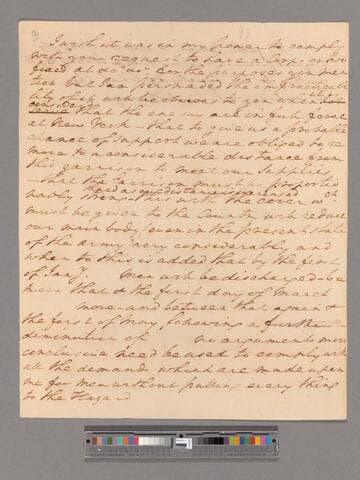 I wish it was in my power to comply
with your request to have a Corps
at &c &c for the purposes you men
tion but I am persuaded the impracticabi
lity of it will be obvious to you when
considered that the enemy are in full force
at New York – that to give us a probable
chance of support we are obliged to re
move to a considerable distance from
this garrison to meet our supplies
– that the garrison must be
nably strong – this with the cover wch
must be given to the Country will reduce
our main body (even in the present state
of the army) very considerably and
when to this is added that by the first
of Jany. Men will be discharged – be
tween that & the first day of March
more – and between that again &
the first of May, following a further
diminution of no arguments more
conclusive need be used to comply with
all the demands which are made upon
me for Men without putting every thing
to the Hazard